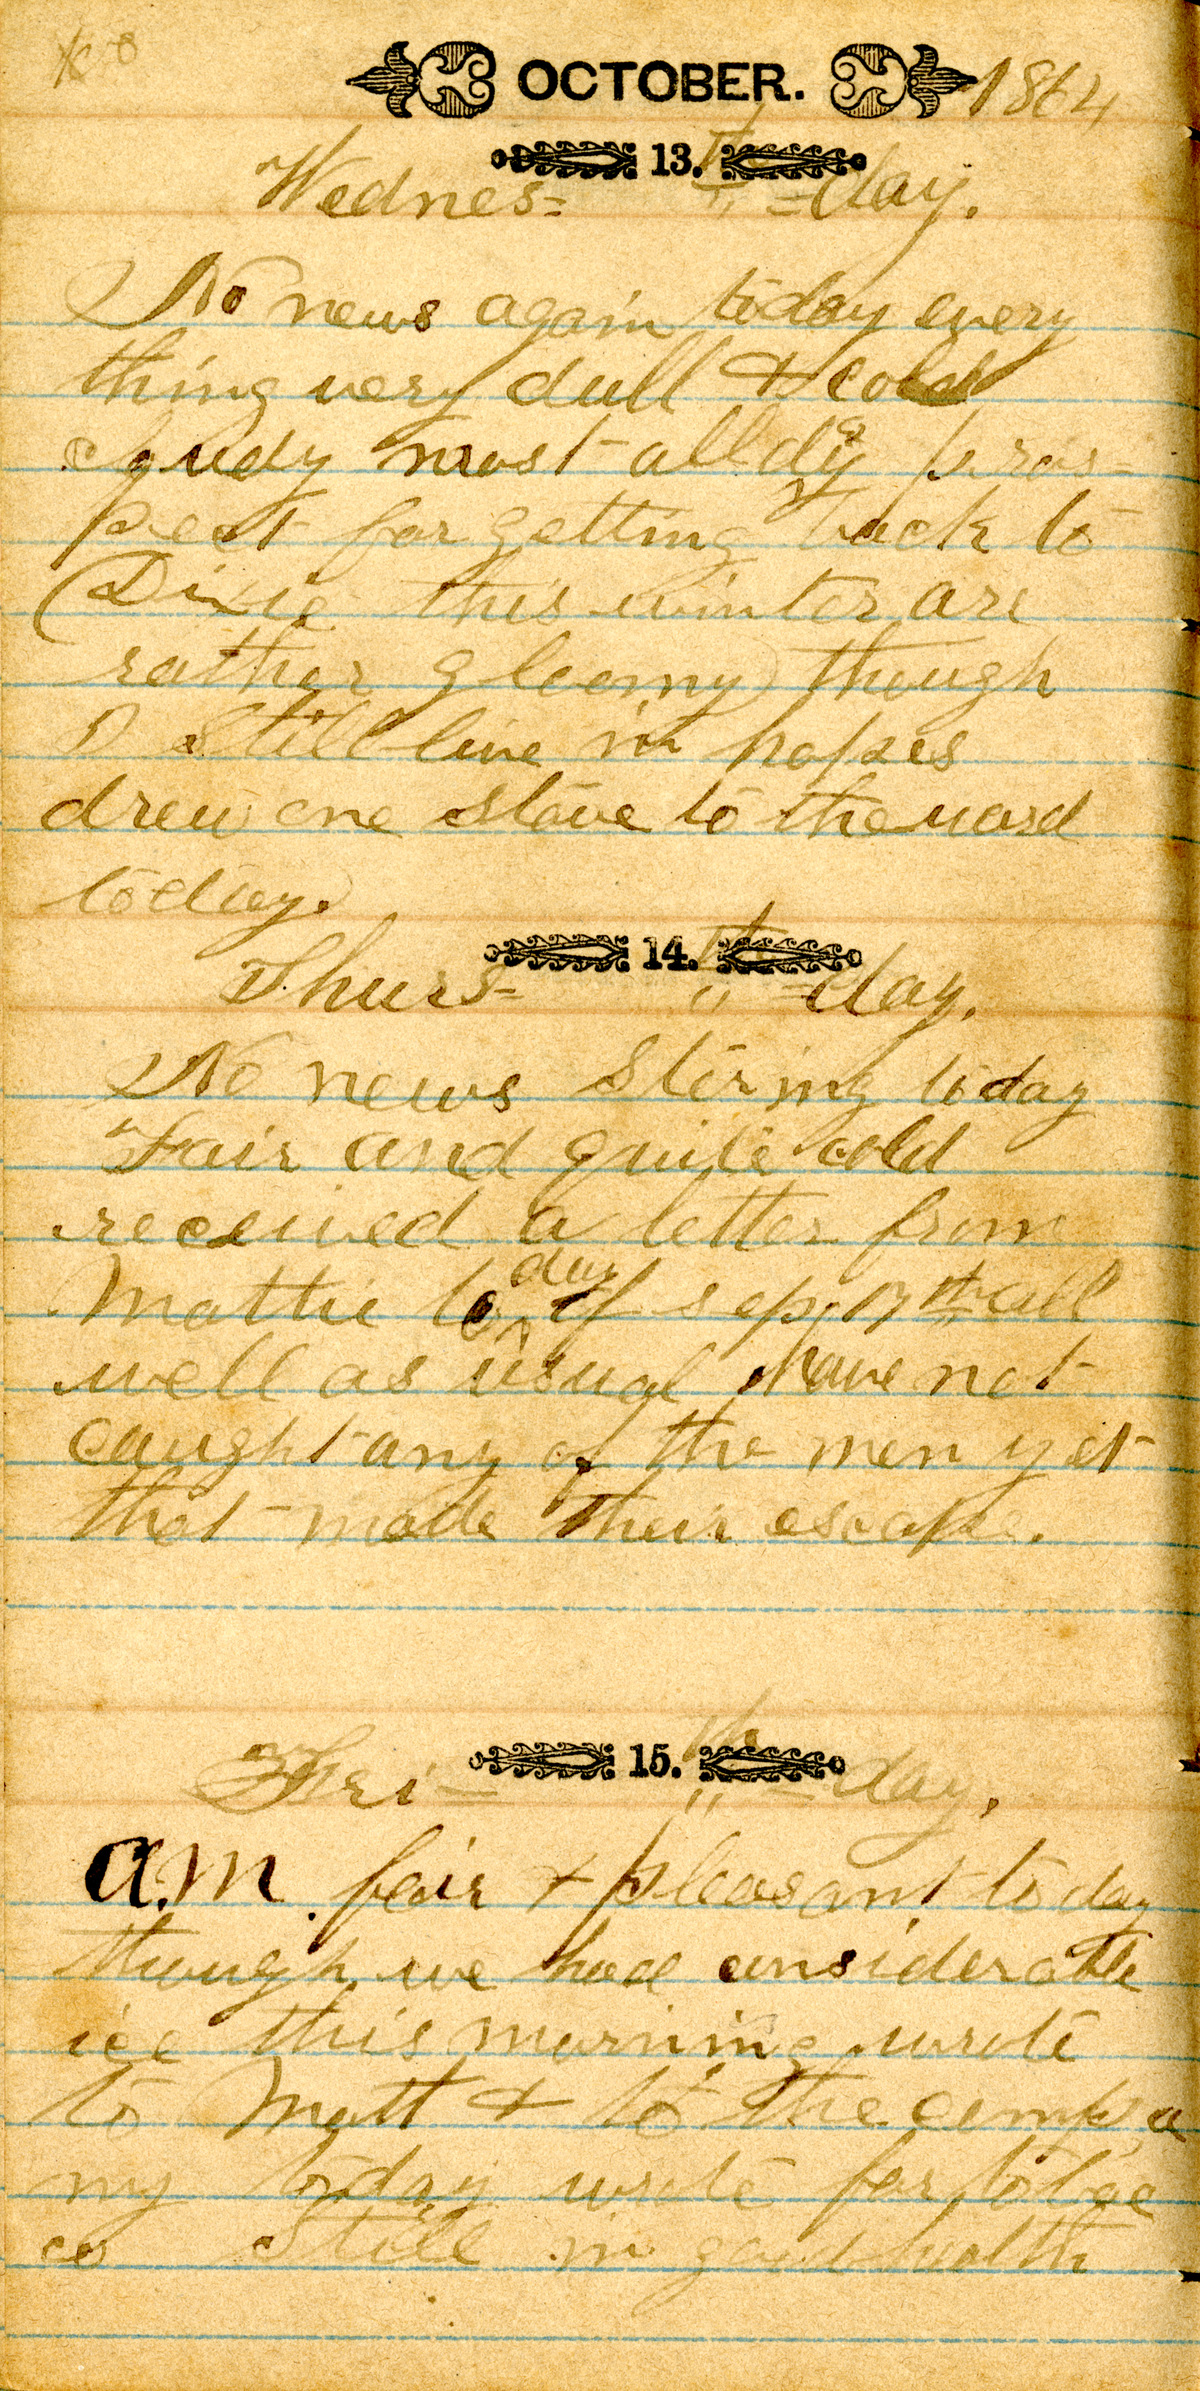 OCTOBER. 1864
Wednes= 13.th =day.
No news again today every
thing very dull & cold
cloudy most all day pros-
pect for getting back to
Dixie this winter are
rather gloomy though
I still live in hopes
drew one stove to the ward
today.
Thurs= 14.th =day.
No news stiring today
Fair and quite cold
received a letter from
Mattie to day of sep, 17th all
well as usual, have not
caught any of the men yet
that made their escape.
Fri= 15.th =day.
A.M. fair & pleasant today
though we had considerable
ice this morning wrote
to Matt & to the comp,a
ny today wrote for tobac
co still in good health